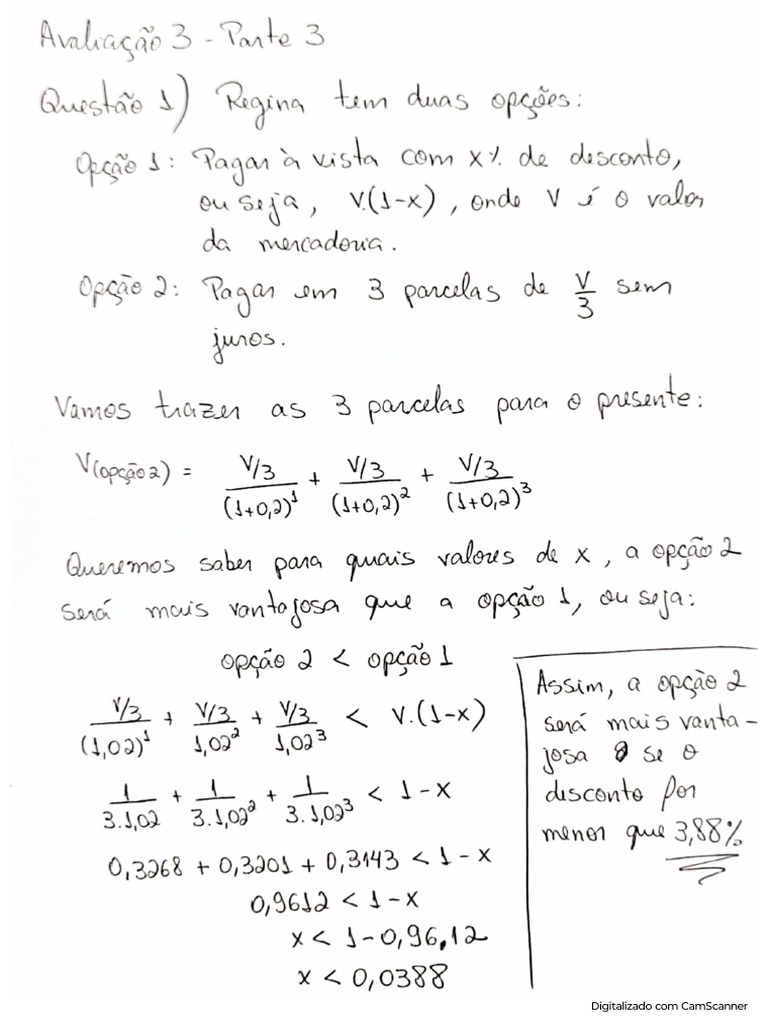 Avaliação 3 - Parte 3
Questão 1) Regina tem duas opções:
Opção 1: Pagar à vista com x% de desconto,
ou seja, V.(1-x), onde V é o valor
da mercadoria.
Opção 2: Pagar em 3 parcelas de V/3 sem
juros.
Vamos trazer as 3 parcelas para o presente:
V(opção 2) = V/3/(1+0,2)^1 + V/3/(1+0,2)^2 + V/3/(1+0,2)^3
Queremos saber para quais valores de x, a opção 2
será mais vantajosa que a opção 1, ou seja:
opção 2 < opção 1
V/3/(1,02)^1 + V/3/1,02^2 + V/3/1,02^3 < V.(1-x)
1/3.1,02 + 1/3.1,02^2 + 1/3.1,02^3 < 1-x
0,3268 + 0,3201 + 0,3143 < 1-x
0,9612 < 1-x
x < 1-0,96,12
x < 0,0388
Assim, a opção 2
será mais vanta-
josa se o
disconto for
menor que 3,88%
Digitalizado com CamScanner